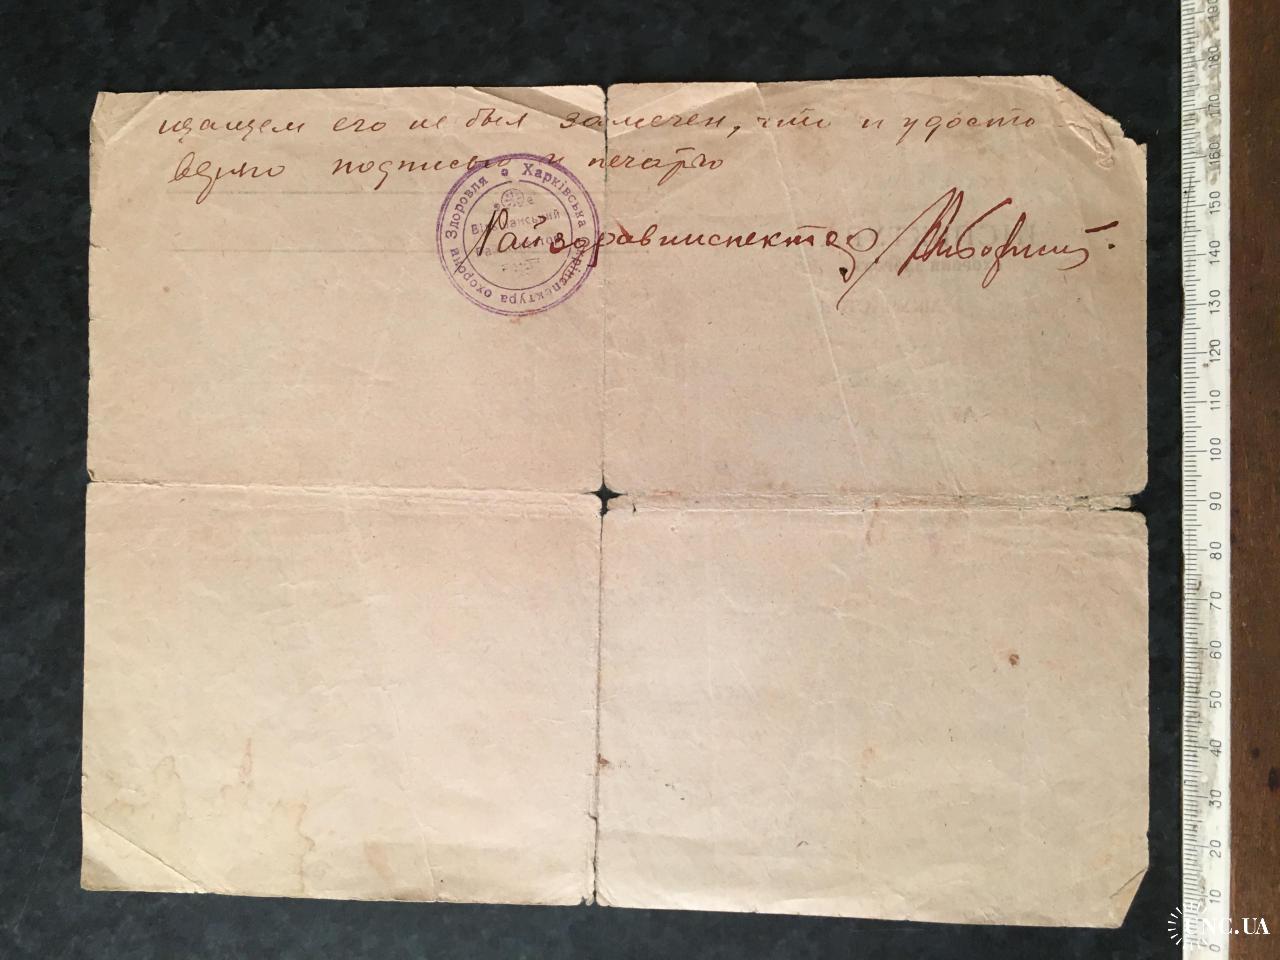 щающем его не был замечен, что и удосто
веряю подписью и печатью
Харківська Окрінспектура охорони Здоровля
Райздравинспектор
190
180
170
160
150
140
130
120
110
100
90
80
70
60
50
40
30
20
10
0
UNC.UA